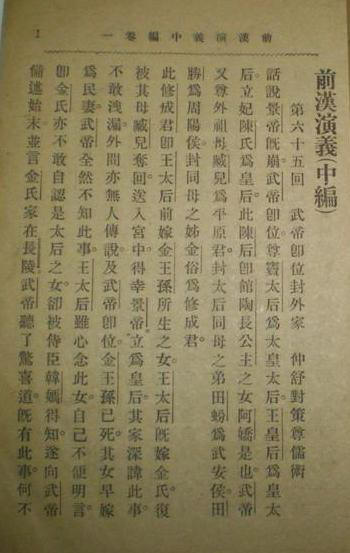 前漢演義中編卷一
1
前漢演義(中編)
第六十五回　武帝卽位封外家　仲舒對策尊儒術
話說景帝旣崩。武帝卽位。尊竇太后爲太皇太后。王皇后爲皇太
后。立妃陳氏爲皇后。此陳后卽館陶長公主之女阿嬌是也。武帝
又尊外祖母臧兒爲平原君。封太后同母之弟田蚡爲武安侯。田
勝爲周陽侯。封同母之姊金俗爲修成君。
此修成君卽王太后前嫁金王孫所生之女。王太后旣嫁金氏。復
被其母臧兒奪回。送入宮中。得幸景帝。立爲皇后。其家深諱此事。
不敢洩漏。外間亦無人傳說。及武帝卽位。金王孫已死。其女早嫁
爲民妻。武帝全然不知此事。王太后雖心念此女。自己不便明言。
卽金氏亦不敢自認是太后之女。卻被侍臣韓嫣得知。遂向武帝
備述始末。並言金氏家在長陵。武帝聽了驚喜道。旣有此事。何不